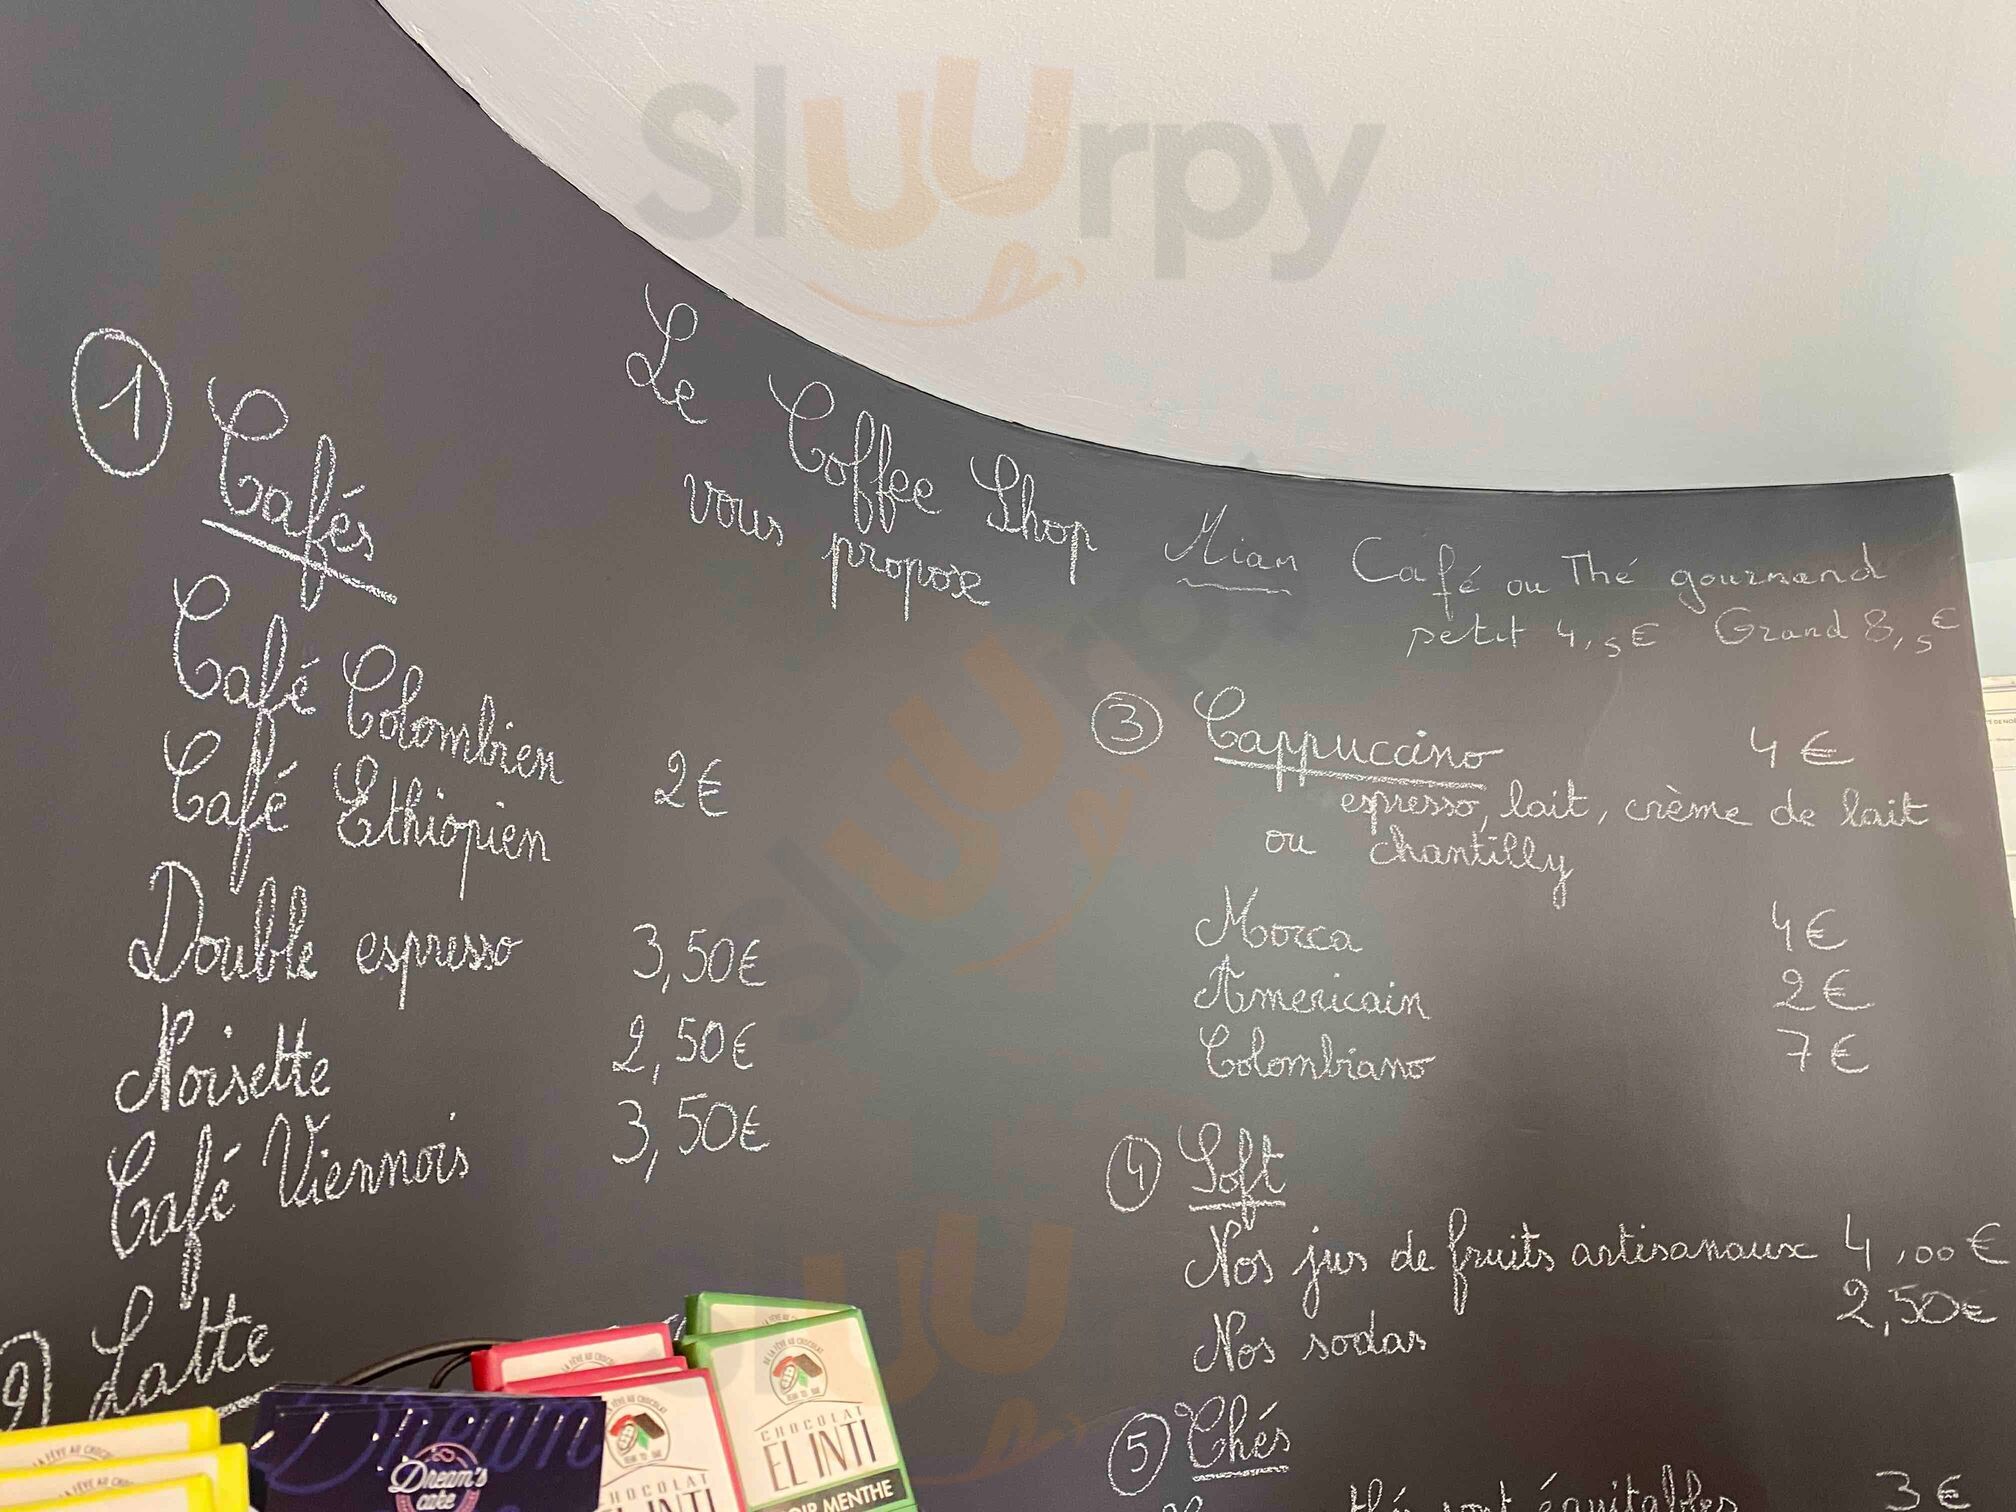 Sluurpy
Le Coffee Shop
vous propose
Miam Café ou Thé gourmand
petit 4,5€ Grand 8,5€
1 Cafés
Café Colombien
Café Ethiopien 2€
Double espresso 3,50€
Noisette 2,50€
Café Viennois 3,50€
2) Latte
3 Cappuccino 4€
espresso, lait, crème de lait
ou chantilly
Morca 4€
Americain 2€
Colombiano 7€
4 Soft
Nos jus de fruits artisanaux 4,00€
Nos sodas 2,50€
5 Thés
thé sont équitables 3€
Sluurpy
DE LA FÈVE AU CHOCOLAT
CHOCOLAT
EL INTI
NOIR MENTHE
CHOCOLAT
EL INTI
Dream's
cake